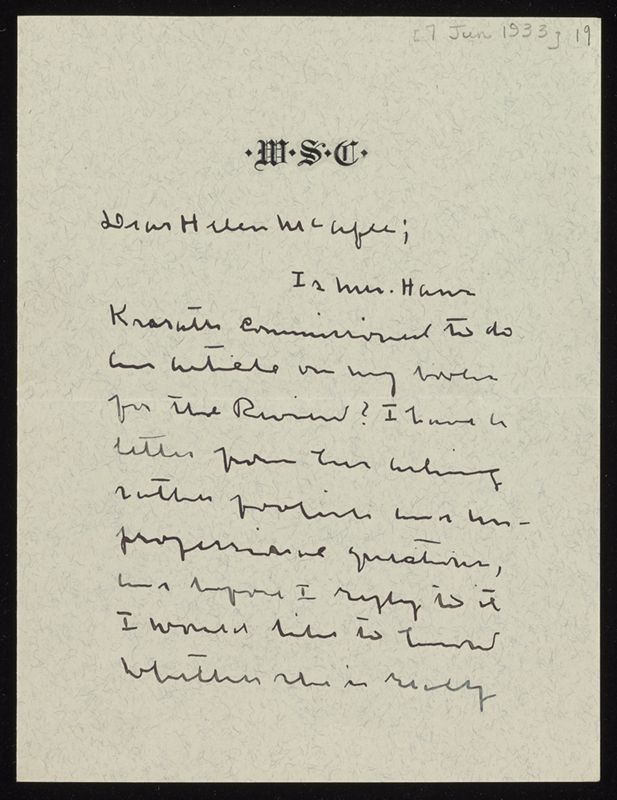 [7 Jun 1933] 19
·W·S·C·
Dear Helen McAfee;
Is Mrs. Hans
commissioned to do
an article on my books
for the Review? I have a
letter from her asking
rather foolish and un-
professional questions,
and before I reply to it
I would like to know
whether she is really